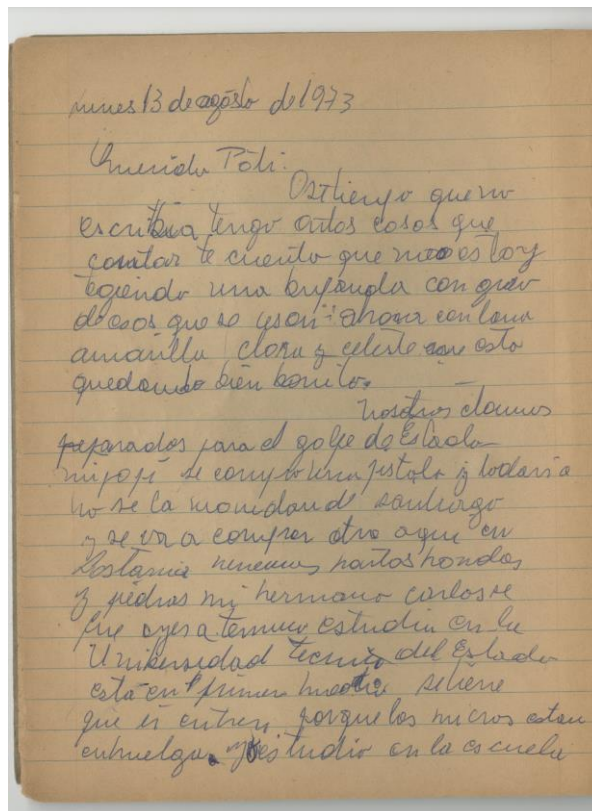 lunes 13 de agosto de 1973
Querida Poli:
que no
escribia tengo artos cosos que
contar te cuento que estoy
tegiendo una bufanda con
de esos que se usan ahora con lana
amarilla clara y celeste esta
quedando bien bonito.
nosotros etamos
preparados para el golpe de Estado
mi papi se compro una pistola y todavia
no se la mandan de santiago
y se va a comprar otro aqui en
tenemos hartos hondos
y piedras mi hermano carlos se
fue ayer a temuco estudia en la
Universidad tecnica del Estado
está en primer se tiene
que ir en tren porque los micros estan
en huelga. yo estudio en la escuela